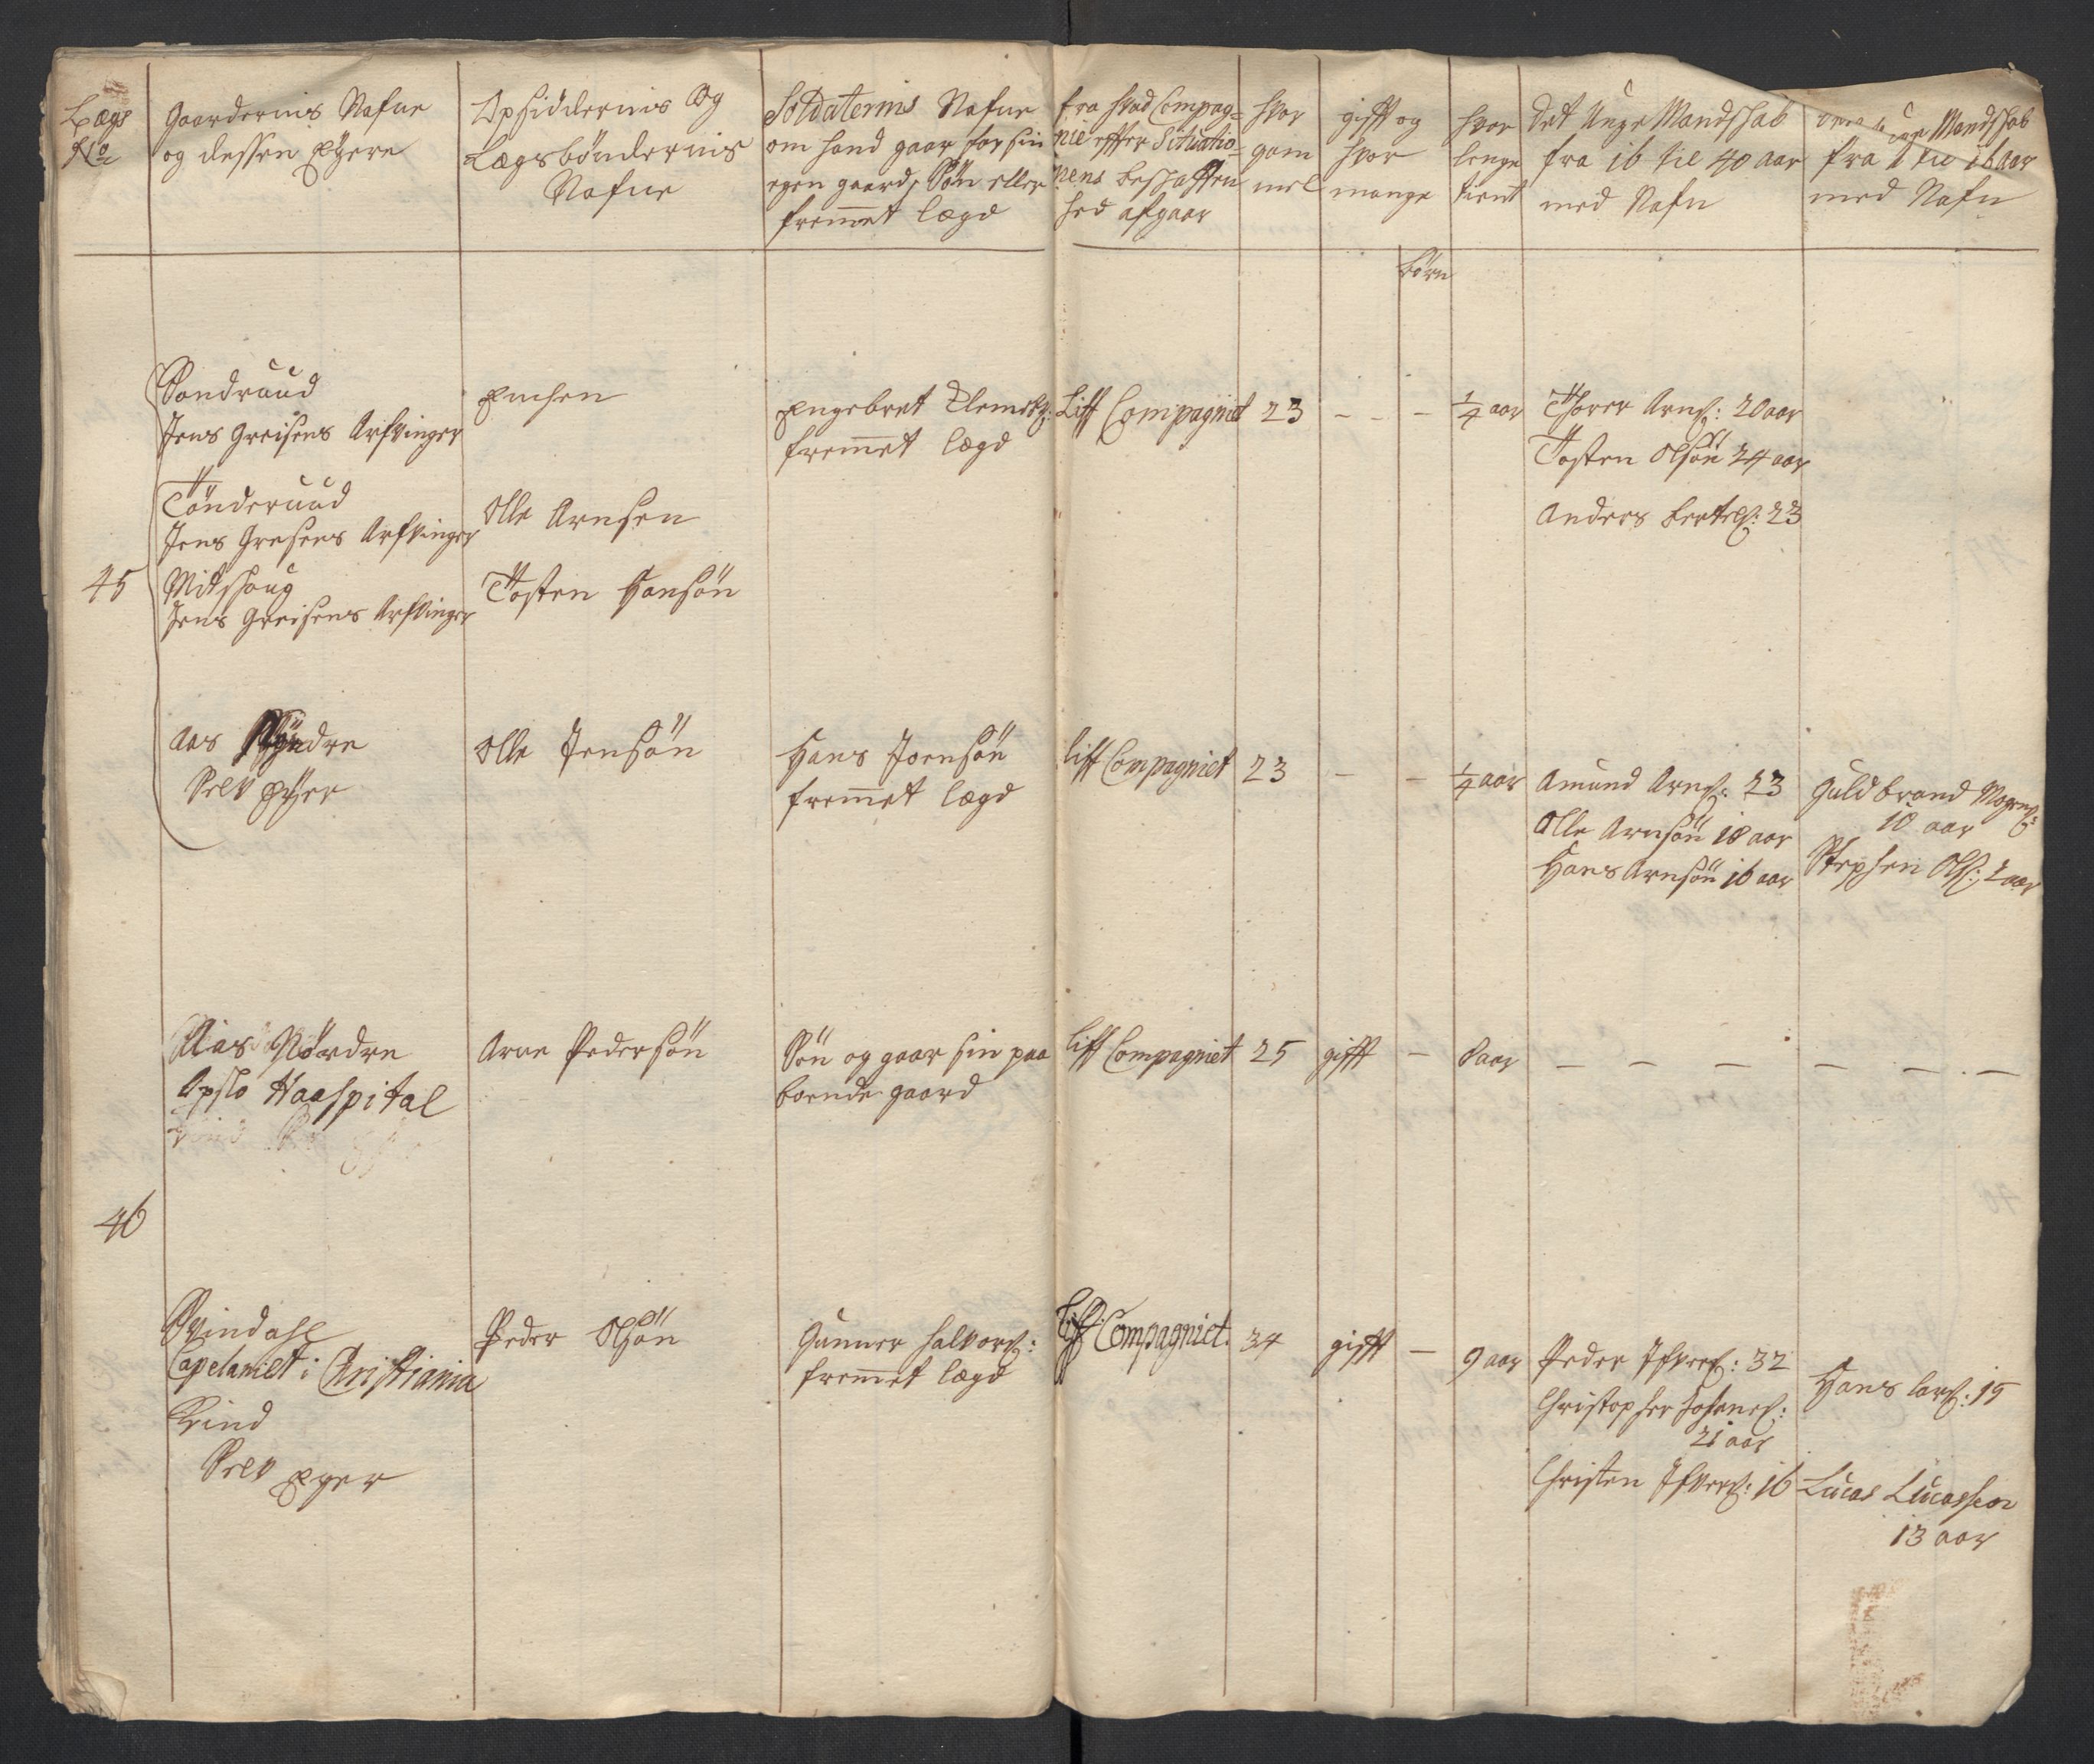 Lægs
No
Gaardernis Nafne
og dessen Eÿere
Opsiddernis Og
Lægsbøndernis
Nafne
Soldaternis Nafne
om hand gaar for sin
egen gaard, Søn eller
fremmet lægd
fra hvad Compag-
nie effter Situatio-
nens beskaffen
hed afgaar
hvor
gam
mel
gifft og
hvor
mange
børn
hvor
lenge
tient
det Unge Mandskab
fra 16 til 40 aar
med Nafn
unge Mandskab
fra 1 til 16 aar
med Nafn
Sondruud
Jens Greisens Arfvinger
Enchen
Engebret Clemetz:
fremmet lægd
Liff Compagniet
23
- - -
1/4 aar
Thorer Arnß: 20 aar
Tosten Olsön 24 aar
Anders bertelß: 23
Tönderuud
Jens Gresens Arfvinger
Olle Arnsen
45
Mitshoug
Jens Greisens Arfvinger
Tosten Hansön
Aas Söndre
Selv Eÿer
Olle Jensön
Hans Joensön
fremmet lægd
liff Compagniet
23
- -
1/4 aar
Amund Arnß: 23
Olle Arnsön 18 aar
Hans Arnsön 16 aar
Guldbrand Mogenß:
10 aar
Stephen Olß: 2 aar
Aas Nördre
Opslo Haaspital
Arne Pedersön
Søn og gaar sin paa
boende gaard
liff Compagniet
25
gifft
-
8 aar
- - - - - -
46
Svindahl
Capelaniet i Christiania
Peder Olsön
Gunner halvorß:
fremmet lægd
Liff Compagniet
34
gifft
-
9 aar
Peder Ifverß: 32
Christopher Johaneß:
21 aar
Christen Ifverß: 16
Hans larß: 15
Lucas Lucassen
13 aar
Krind
Selv Eyer